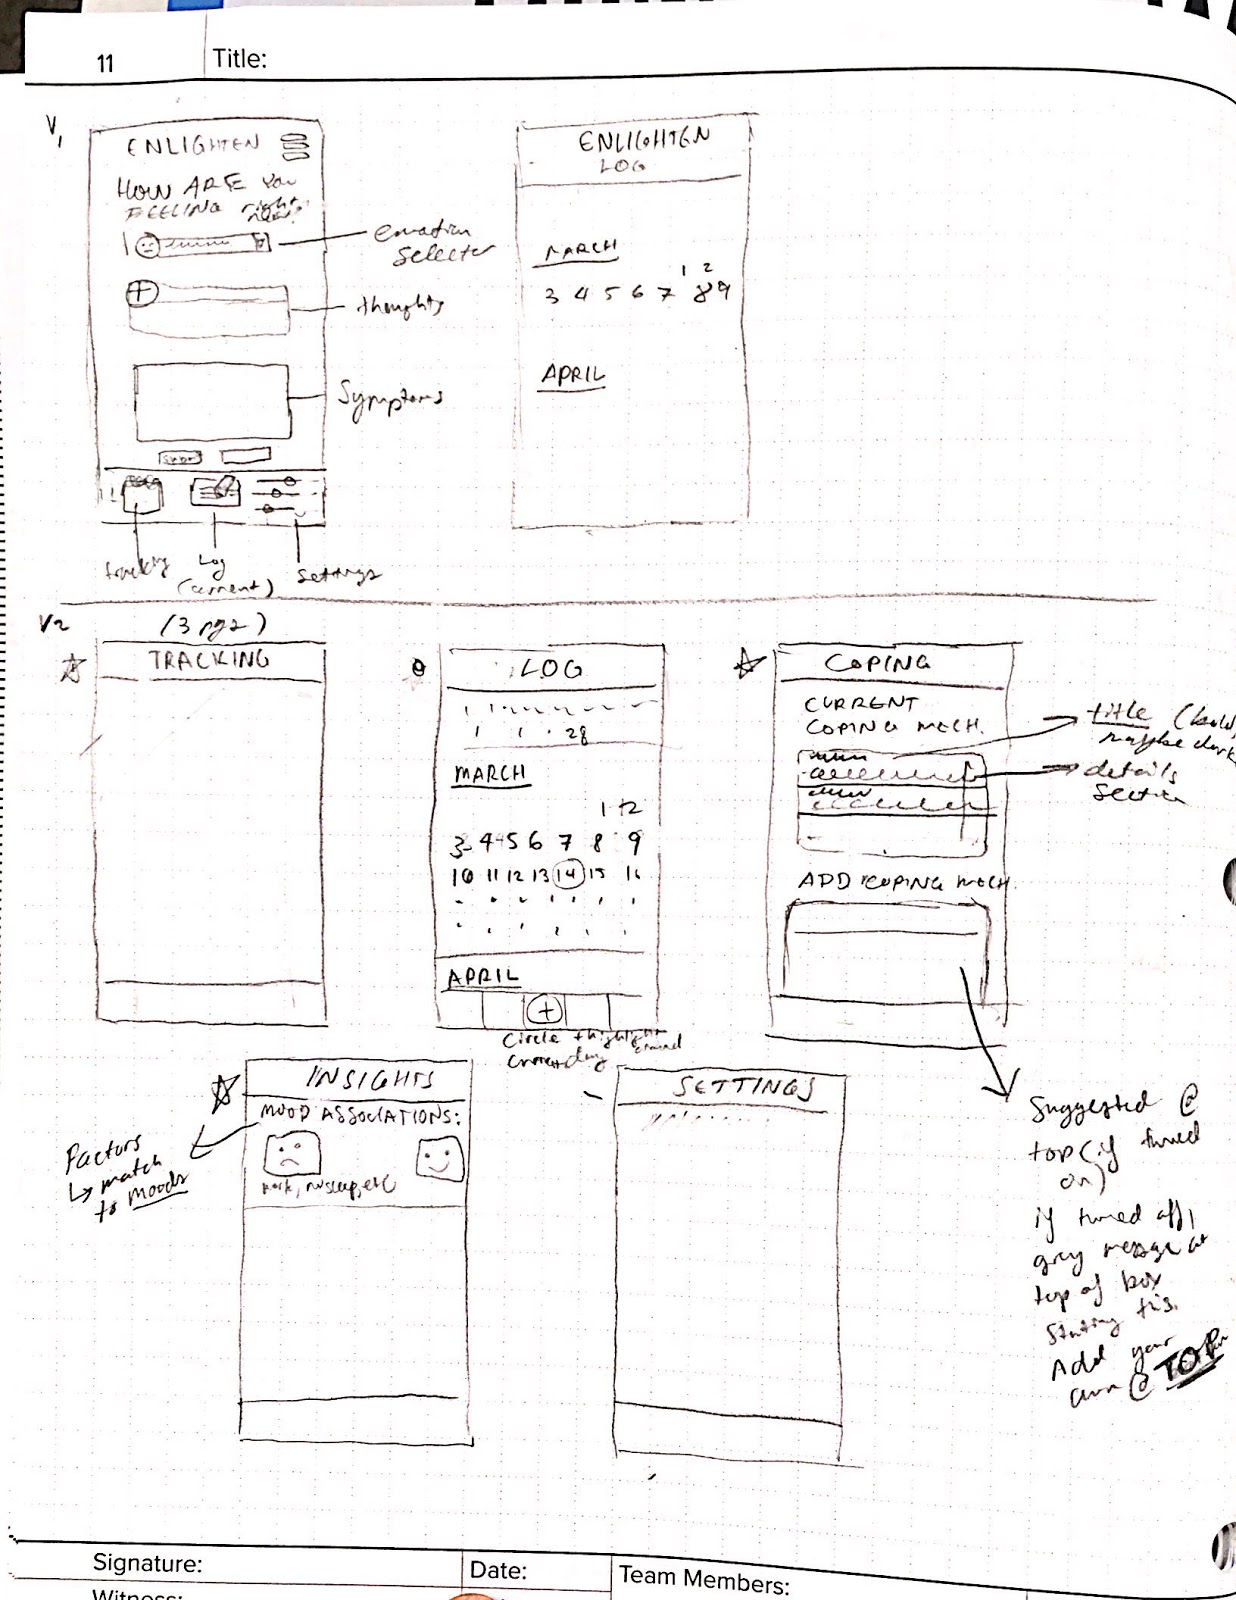 11
Title:
V1
ENLIGHTEN
HOW ARE YOU
FEELING right
now?
emotion
selector
thoughts
Symptoms
tracking
Log
(current)
settings
ENLIGHTEN
LOG
MARCH
1 2
3 4 5 6 7 8 9
APRIL
V2
(3 pgs)
TRACKING
LOG
28
MARCH
1 2
3 4 5 6 7 8 9
10 11 12 13 14 15 16
APRIL
+
Circle + highlight
around
current day
COPING
CURRENT
COPING MECH.
title (bold,
maybe dark
details
section
ADD COPING MECH.
Suggested @
top (if turned
on)
if turned off,
grey message at
top of box
stating this.
Add your
own @ TOP
INSIGHTS
MOOD ASSOCIATIONS:
work, no sleep, etc
Factors
↳ match
to moods
SETTINGS
Signature:
Date:
Team Members:
Witness: